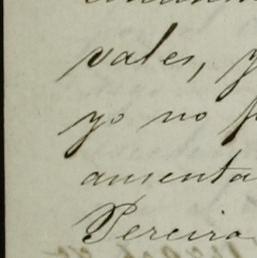 vales, y
yo no
aumenta
Pereira